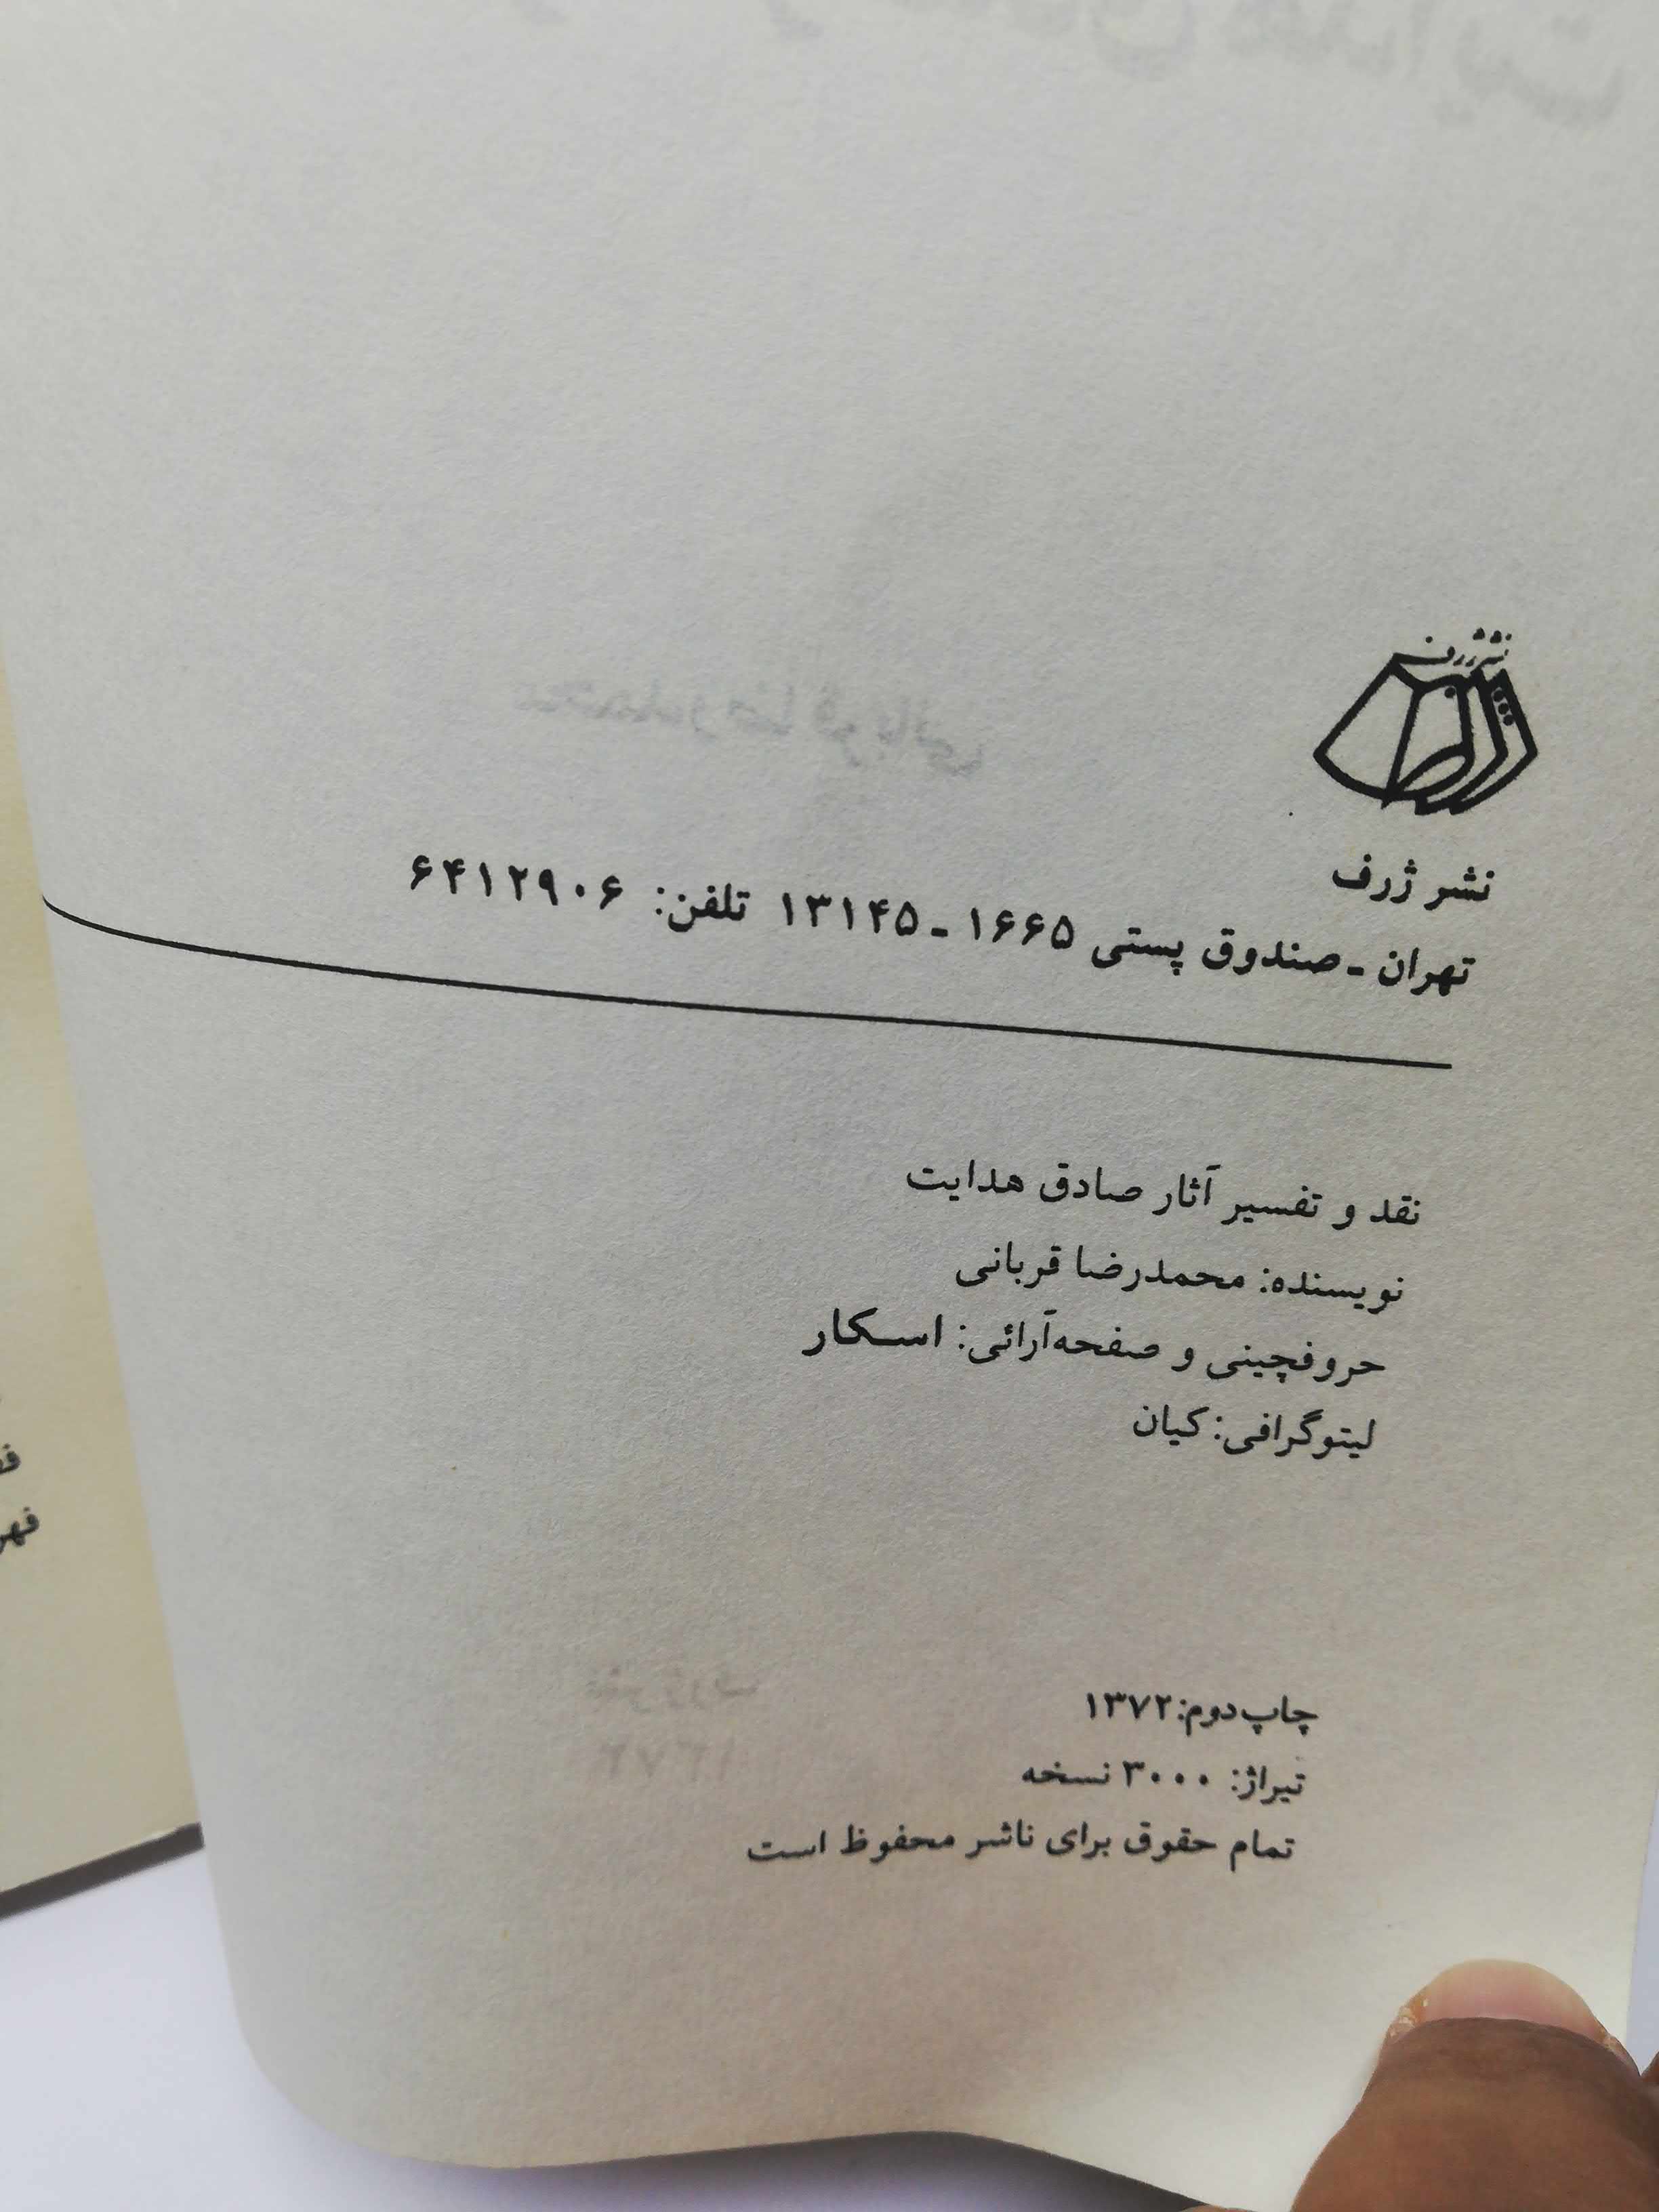 نشر ژرف
نشر ژرف
تهران ـ صندوق پستی ۱۶۶۵ ـ ۱۳۱۴۵ تلفن: ۶۴۱۲۹۰۶
نقد و تفسیر آثار صادق هدایت
نویسنده: محمدرضا قربانی
حروفچینی و صفحه‌آرائی: اسکار
لیتوگرافی: کیان
چاپ دوم: ۱۳۷۲
تیراژ: ۳۰۰۰ نسخه
تمام حقوق برای ناشر محفوظ است